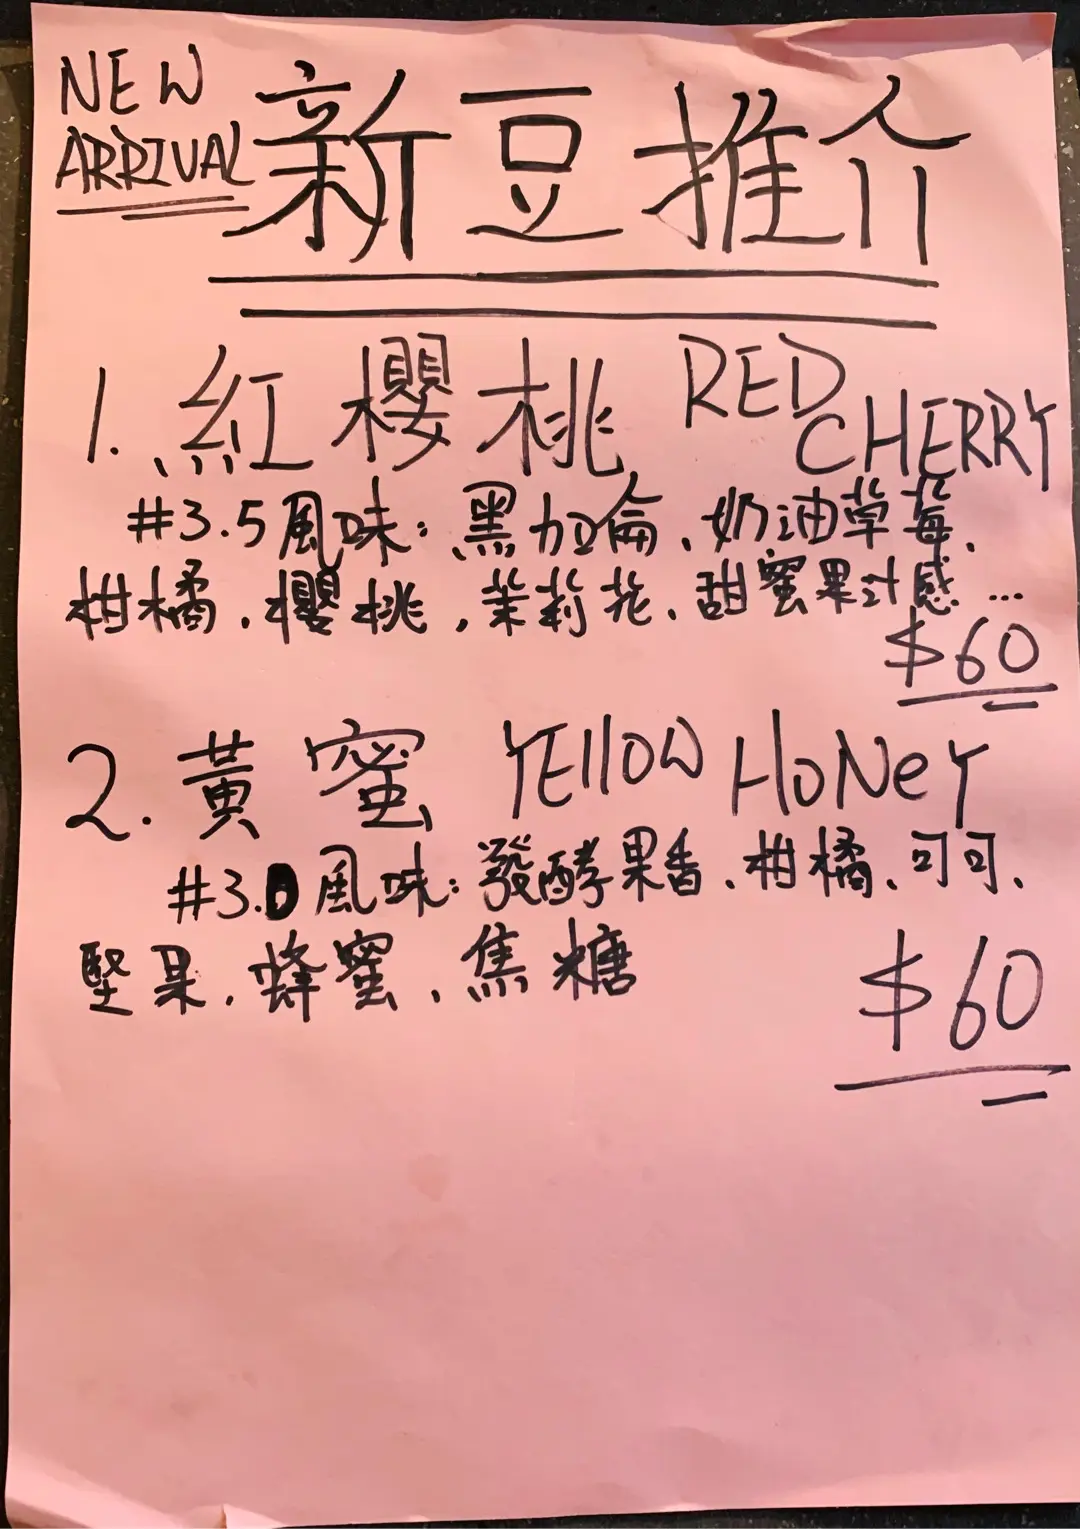 NEW
ARRIVAL
新豆推介
1. 紅櫻桃 RED CHERRY
#3.5風味：黑加侖、奶油草莓、
柑橘、櫻桃，茉莉花、甜蜜果汁感…
$60
2. 黃蜜 YEllOW HoNeY
#3.0風味：發酵果香、柑橘、可可、
堅果、蜂蜜、焦糖
$60